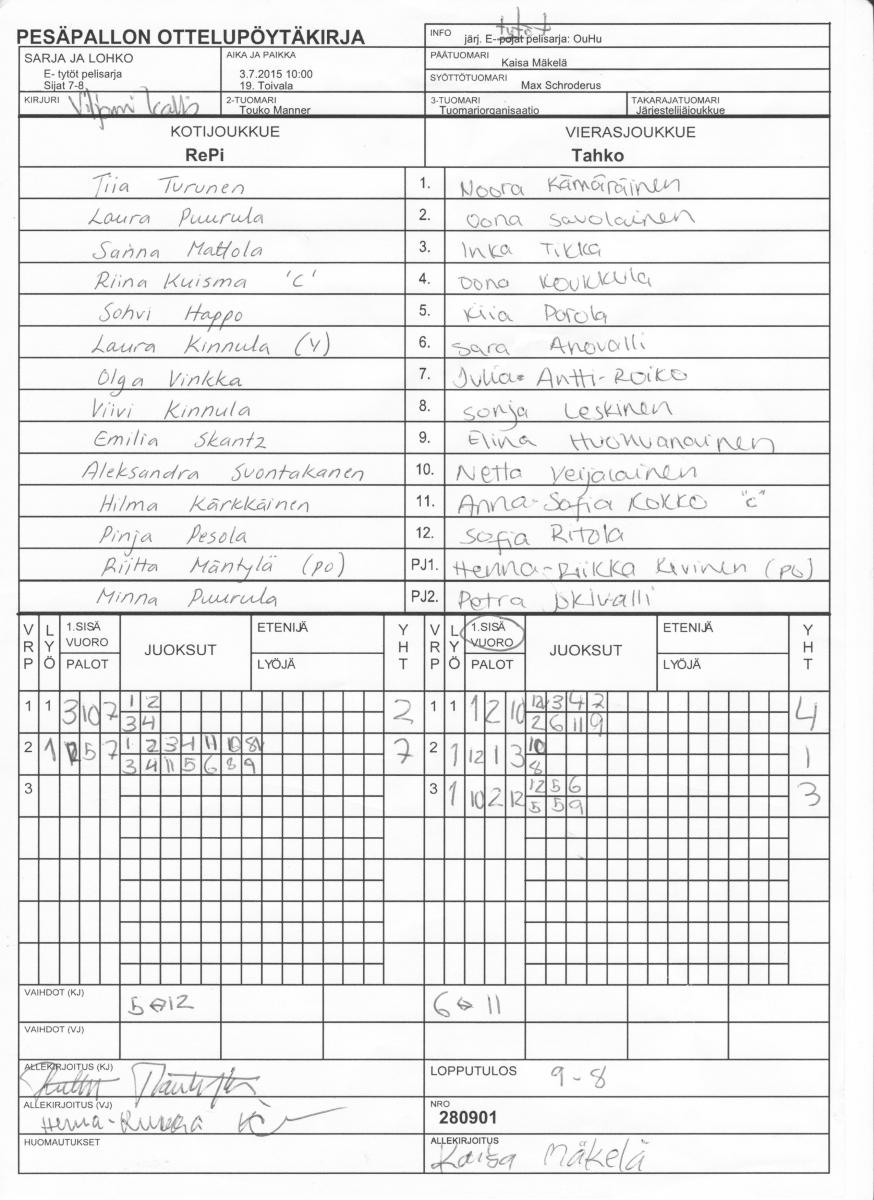 PESÄPALLON OTTELUPÖYTÄKIRJA
INFO tytöt
järj. E-pojat pelisarja: OuHu
SARJA JA LOHKO
E- tytöt pelisarja
Sijat 7-8
AIKA JA PAIKKA
3.7.2015 10:00
19. Toivala
PÄÄTUOMARI
Kaisa Mäkelä
SYÖTTÖTUOMARI
Max Schroderus
KIRJURI
2-TUOMARI
Touko Manner
3-TUOMARI
Tuomariorganisaatio
TAKARAJATUOMARI
Järjestelijäjoukkue
KOTIJOUKKUE VIERASJOUKKUE
RePi Tahko
Tiia Turunen 1. Noora Kämäräinen
Laura Puurula 2. Oona Savolainen
Sanna Mattola 3. Inka Tikka
Riina Kuisma 'C' 4. Oona Koukkula
Sohvi Happo 5. Kiia Porola
Laura Kinnula (V) 6. Sara Anovalli
Olga Vinkka 7. Julia Antti-Roiko
Viivi Kinnula 8. Sonja Leskinen
Emilia Skantz 9. Elina Huohvanainen
Aleksandra Suontakanen 10. Netta Veijalainen
Hilma Kärkkäinen 11. Anna-Sofia Kokko "C"
Pinja Pesola 12. Sofia Ritola
Riitta Mäntylä (po) PJ1. Henna-Riikka Kivinen (po)
Minna Puurula PJ2. Petra Jokivalli
VRP LYÖ 1.SISÄ VUORO PALOT JUOKSUT ETENIJÄ LYÖJÄ YHT VRP LYÖ 1.SISÄ VUORO PALOT JUOKSUT ETENIJÄ LYÖJÄ YHT
1 1 3 10 7 1 2 2 1 1 1 2 10 12 3 4 7 4
3 4 2 6 11 9
2 1 12 5 7 1 2 3 4 11 10 8 7 2 1 12 1 3 10 1
3 4 11 5 6 8 9 8
3 3 1 10 2 12 12 5 6 3
5 5 9
VAIHDOT (KJ) 5⇔12 6⇔11
VAIHDOT (VJ)
ALLEKIRJOITUS (KJ) LOPPUTULOS 9-8
ALLEKIRJOITUS (VJ) Henna-Riikka
NRO
280901
HUOMAUTUKSET
ALLEKIRJOITUS
Kaisa Mäkelä